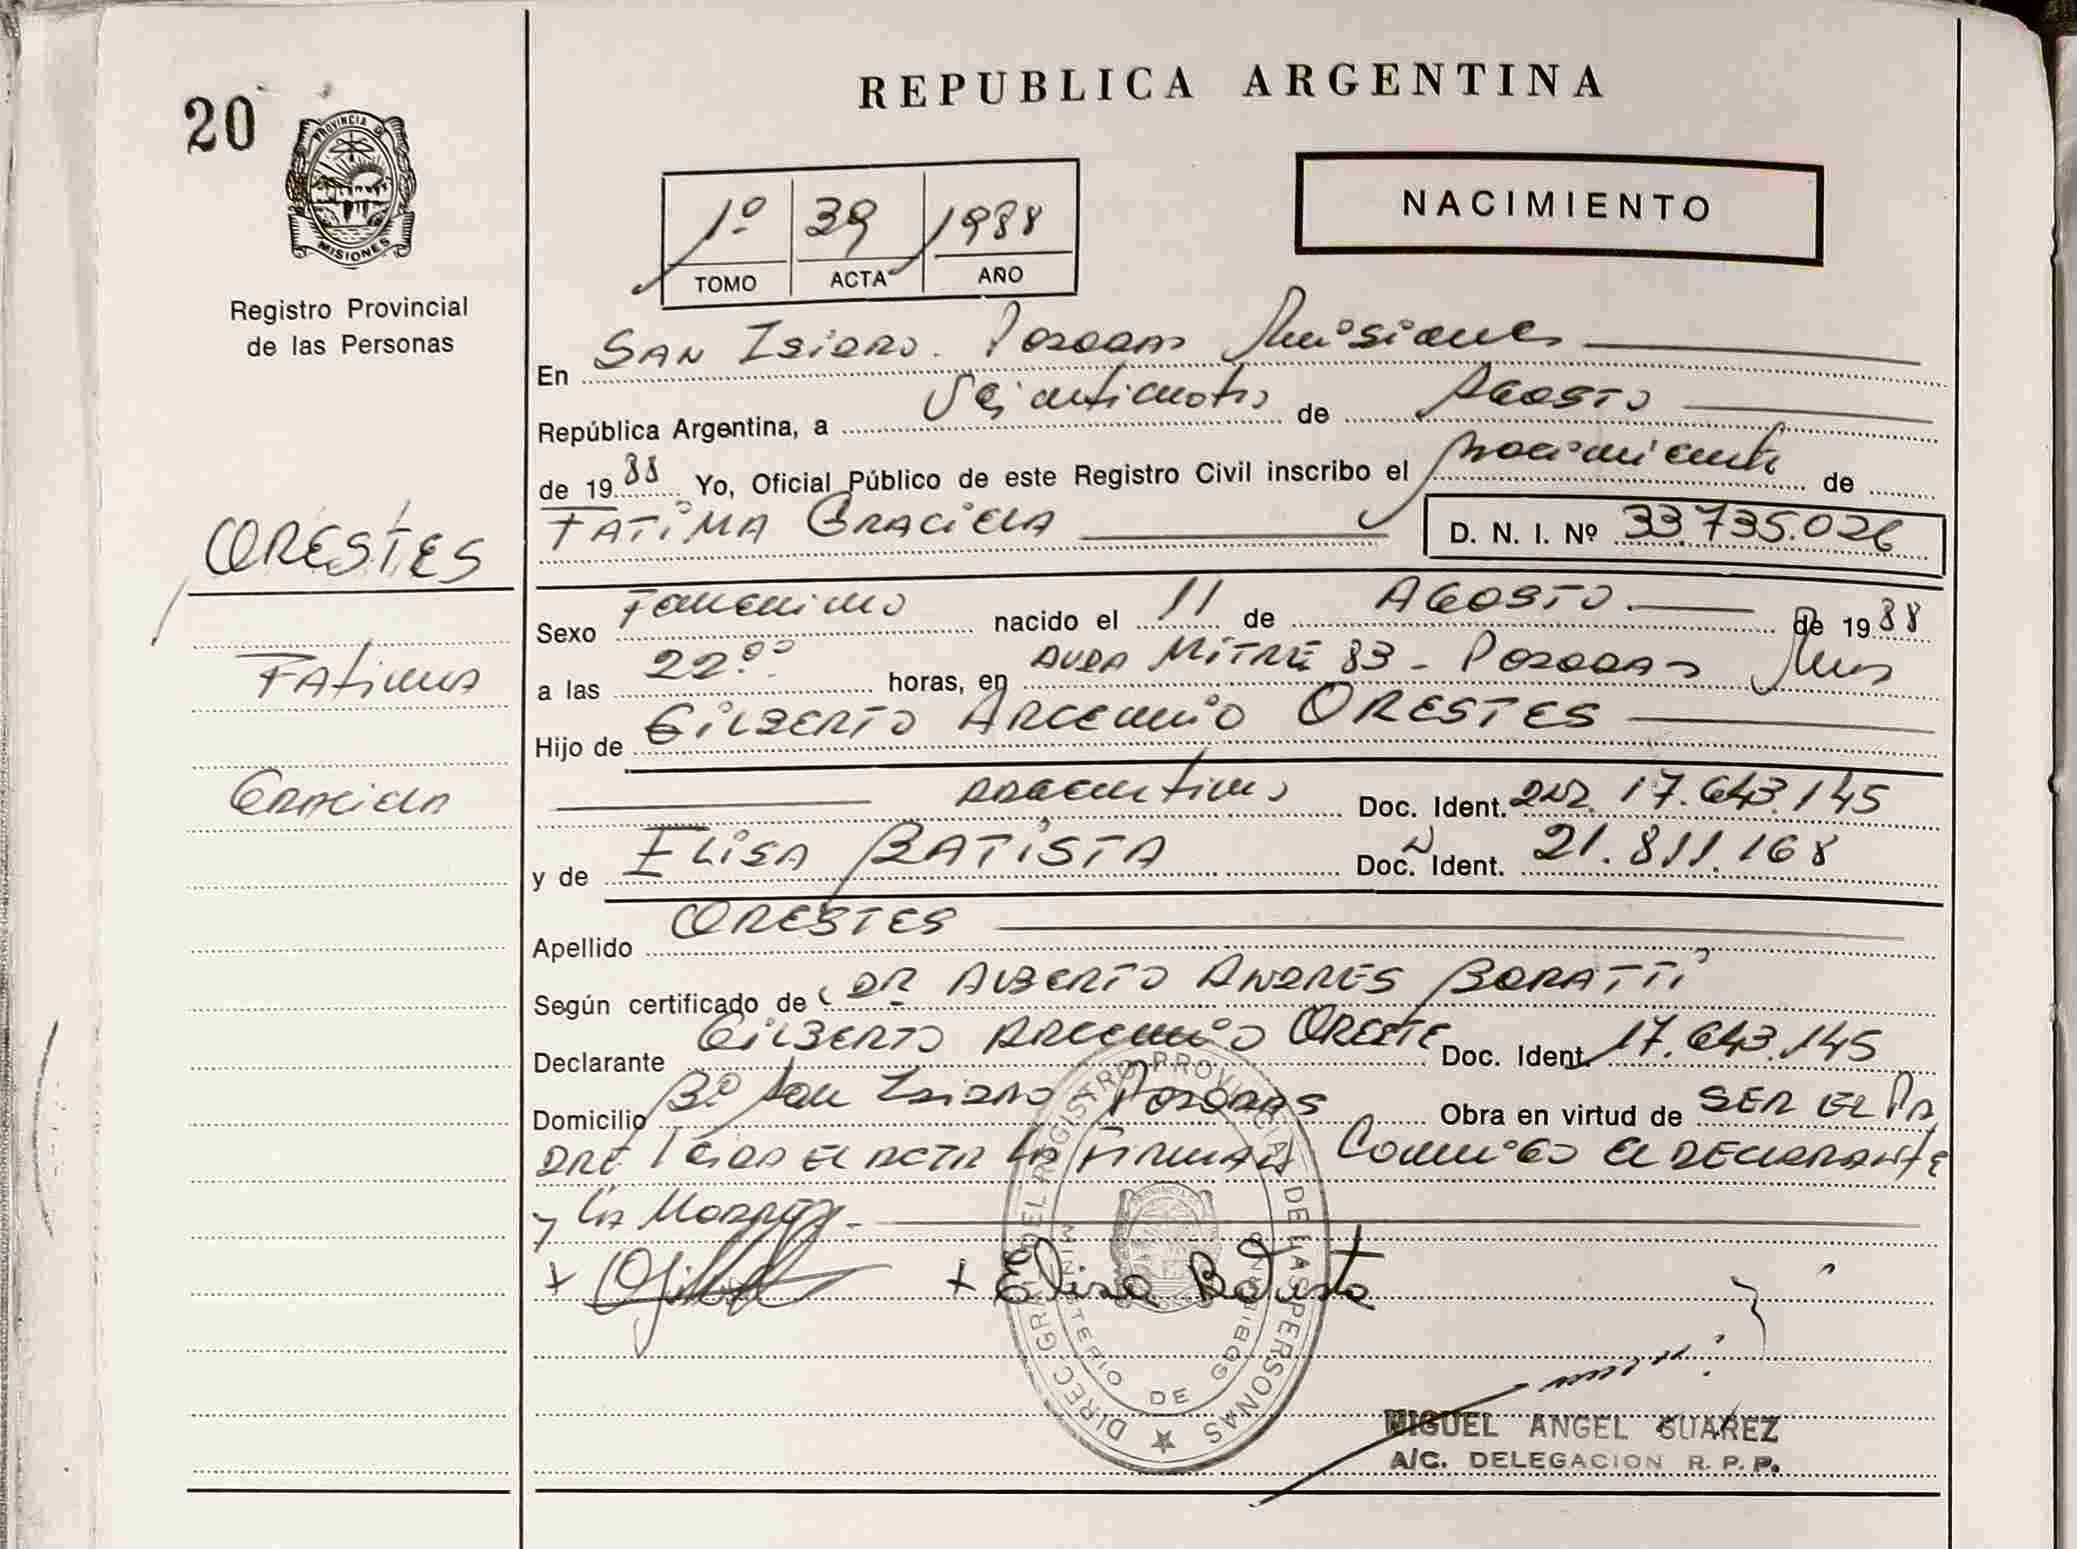 20
PROVINCIA DE
MISIONES
Registro Provincial
de las Personas
REPUBLICA ARGENTINA
1º 39 1988
TOMO ACTA AÑO
NACIMIENTO
En San Isidro. Posadas Misiones
República Argentina, a Veinticuatro de Agosto
de 1988 Yo, Oficial Público de este Registro Civil inscribo el nacimiento de
Fatima Graciela D. N. I. Nº 33.735.026
ORESTES
Fatima
Graciela
Sexo Femenino nacido el 11 de AGOSTO de 1988
a las 22ºº horas, en AVDA MITRE 83 - Posadas Mnes
Hijo de Gilberto Arcemio ORESTES
argentino Doc. Ident. DNI. 17.643.145
y de Elisa BATISTA Doc. Ident. 21.811.168
Apellido ORESTES
Según certificado de DR ALBERTO ANDRES BORATTI
Declarante Gilberto Arcemio ORESTE Doc. Ident. 17.643.145
Domicilio Bº San Isidro Posadas Obra en virtud de SER EL PA
DRE Leida el acta la firman conmigo el DECLARANTE
y la Madre.-
+ + Elisa Batista
DIREC GRAL DEL REGISTRO PROVINCIAL DE LAS PERSONAS
MINISTERIO DE GOBIERNO
MIGUEL ANGEL SUAREZ
A/C. DELEGACION R. P. P.